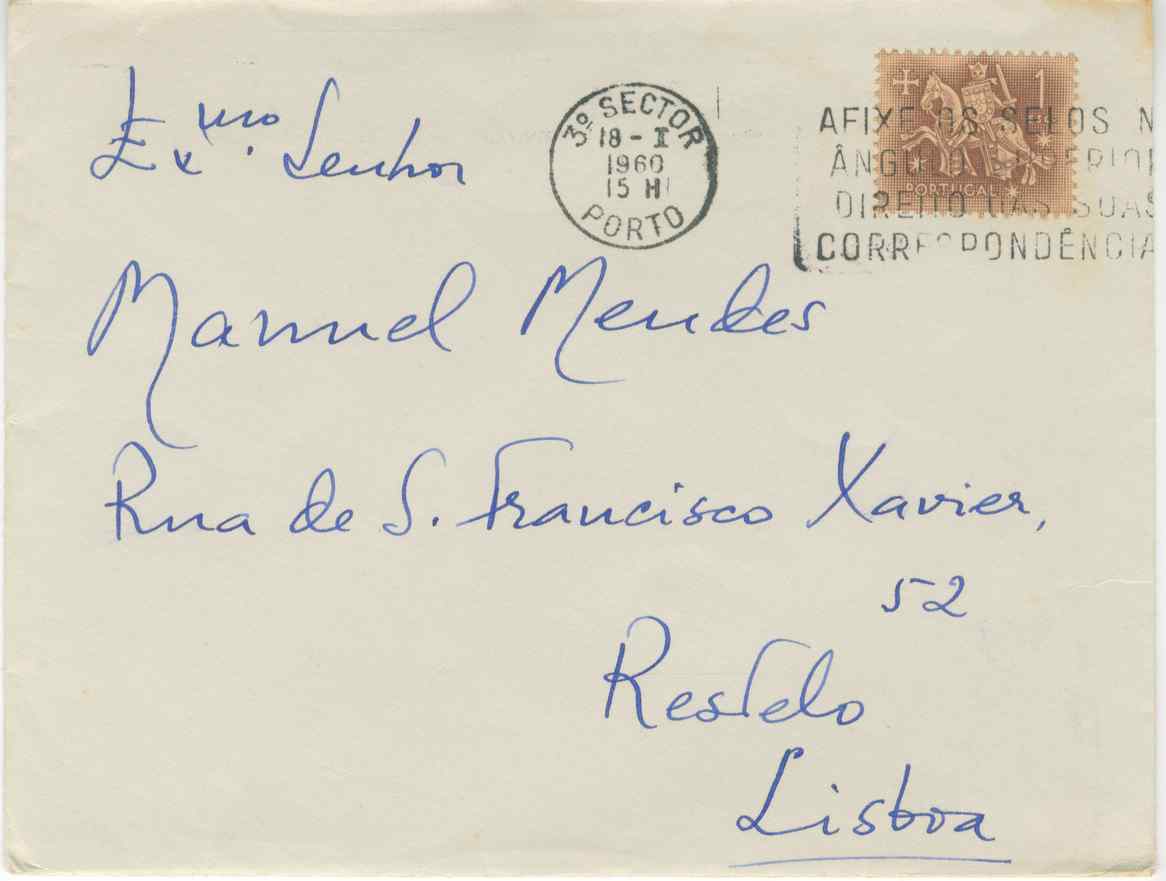 Ex.mo Senhor
Manuel Mendes
Rua de S. Francisco Xavier,
52
Restelo
Lisboa
3º SECTOR
18 - I
1960
15 H
PORTO
1
PORTUGAL
AFIXE OS SELOS N
ÂNGULO SUPERIOR
DIREITO DAS SUAS
CORRESPONDÊNCIA